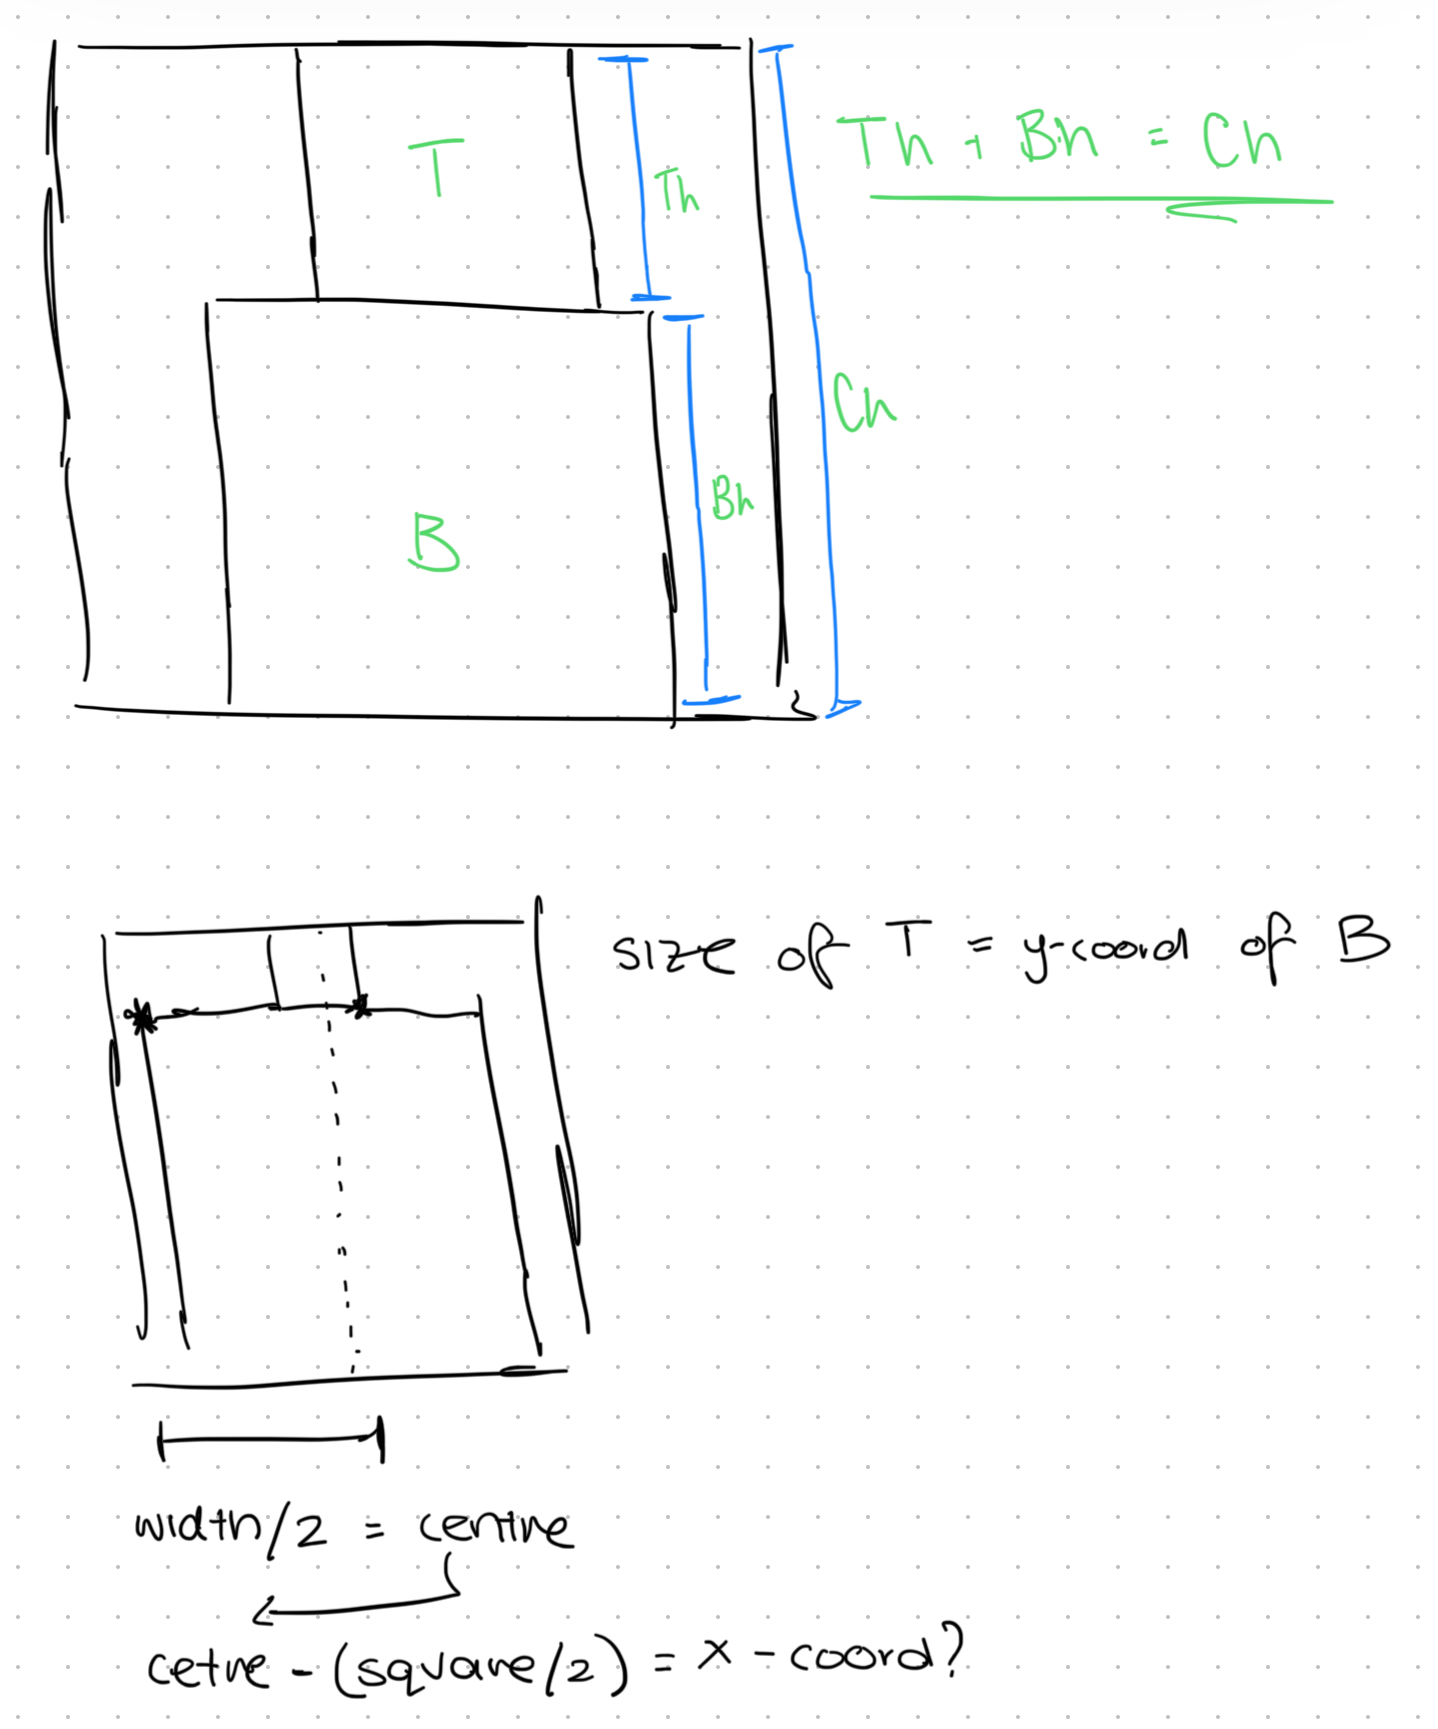 T
Th
Th + Bh = Ch
Ch
Bh
B
size of T = y-coord of B
width/2 = centre
cetre - (square/2) = x - coord?